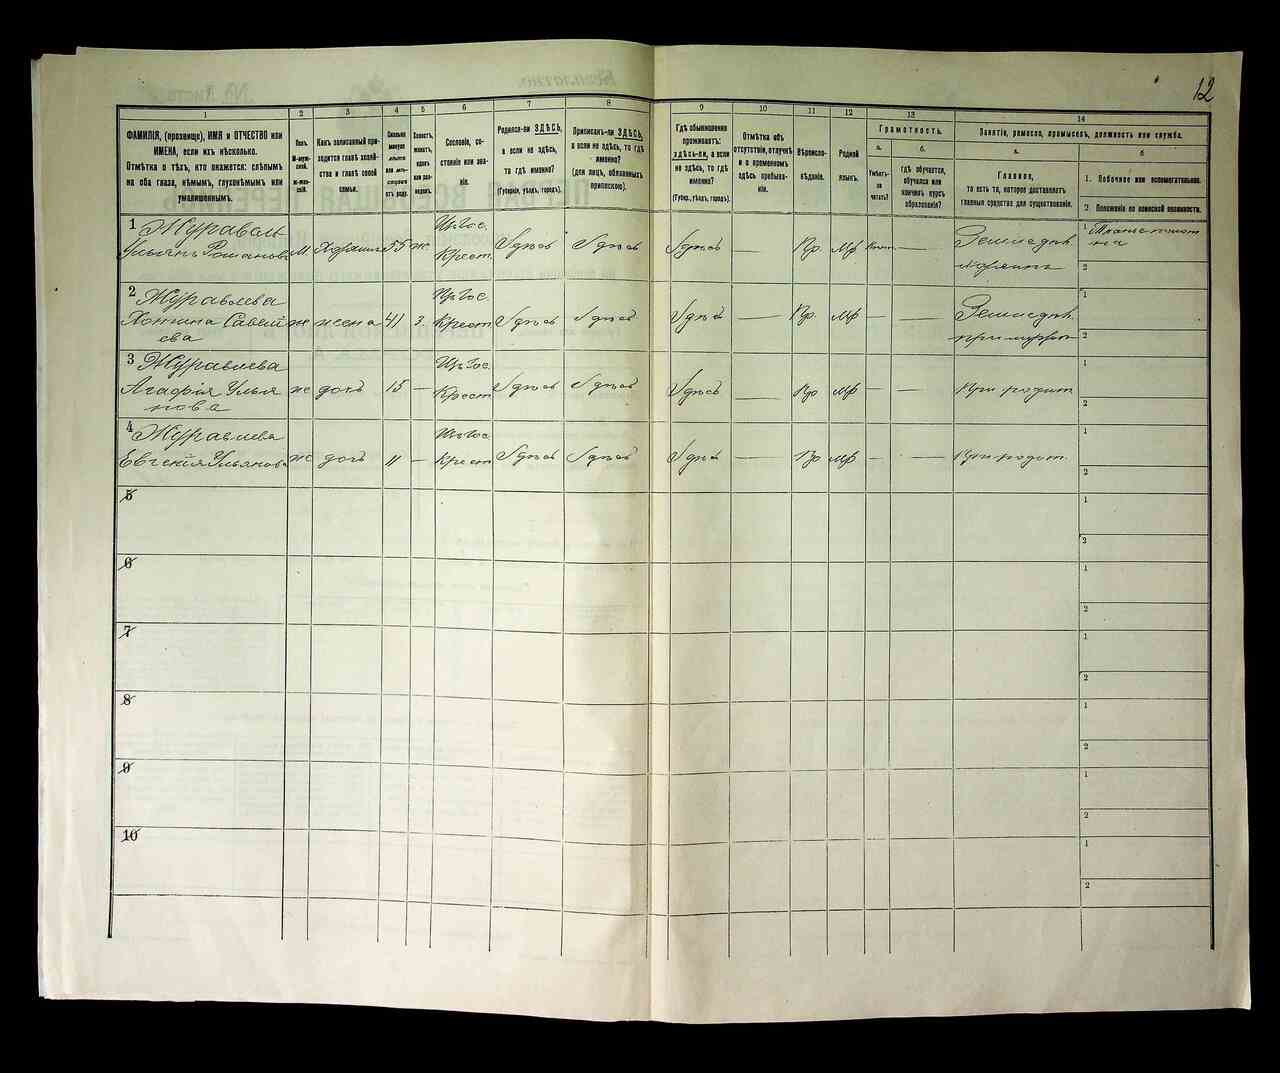 12
1 2 3 4 5 6 7 8 9 10 11 12 13 14
ФАМИЛІЯ, (прозвище), ИМЯ и ОТЧЕСТВО или
ИМЕНА, если ихъ нѣсколько.
Отмѣтка о тѣхъ, кто окажется: слѣпымъ
на оба глаза, нѣмымъ, глухонѣмымъ или
умалишеннымъ.
Полъ.
М-мужской.
Ж-женскій.
Какъ записанный приходится
главѣ хозяйства
и главѣ своей
семьи.
Сколько
минуло
лѣтъ
или мѣсяцевъ
отъ роду.
Холостъ,
женатъ,
вдовъ
или разведенъ.
Сословіе, состояніе
или званіе.
Родился-ли ЗДѢСЬ,
а если не здѣсь,
то гдѣ именно?
(Губернія, уѣздъ, городъ).
Приписанъ-ли ЗДѢСЬ,
а если не здѣсь, то гдѣ
именно?
(для лицъ, обязанныхъ
припискою).
Гдѣ обыкновенно
проживаетъ:
здѣсь-ли, а если
не здѣсь, то гдѣ
именно?
(Губер., уѣздъ, городъ).
Отмѣтка объ
отсутствіи, отлучкѣ
и о временномъ
здѣсь пребываніи.
Вѣроисповѣданіе.
Родной
языкъ.
Грамотность.
а. б.
Умѣетъ-ли
читать?
Гдѣ обучается,
обучался или
кончилъ курсъ
образованія?
Занятіе, ремесло, промыселъ, должность или служба.
а. б.
Главное,
то есть то, которое доставляетъ
главныя средства для существованія.
1. Побочное или вспомогательное.
2. Положеніе по воинской повинности.
1 Журавль
Ульянъ Романовъ М. 55 ж Гос. Крест. Здѣсь Здѣсь Здѣсь — Пр. Мр — Земледѣл.
1
2
2 Журавлева
Савель ева же жена 41 з. Гос. Крест. Здѣсь Здѣсь Здѣсь — Пр. Мр — — Земледѣл.
1
2
3 Журавлева
Агафія Улья нова же дочь 15 — Гос. Крест Здѣсь Здѣсь Здѣсь — Пр Мр — — При родит
1
2
4 Журавлева
Евгенія Ульянова же дочь 11 — Гос. Крест Здѣсь Здѣсь Здѣсь — Пр Мр — — При родит.
1
2
5
1
2
6
1
2
7
1
2
8
1
2
9
1
2
10
1
2